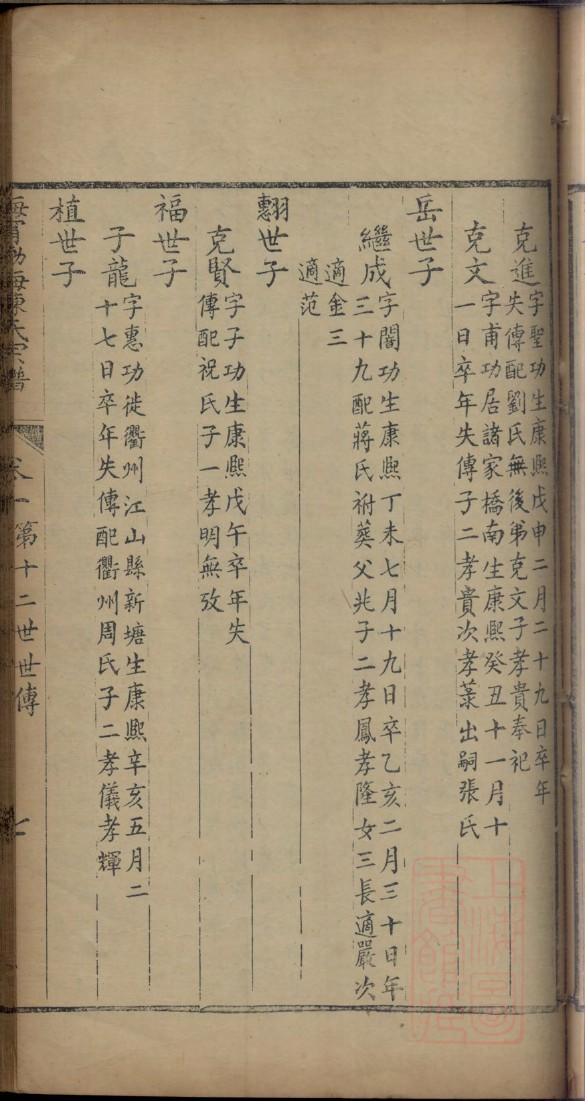 克進字聖功生康熙戊申二月二十九日卒年
失傳配劉氏無後弟克文子孝貴奉祀
克文字甫功居諸家橋南生康熙癸丑十一月十
一日卒年失傳子二孝貴次孝葇出嗣張氏
岳世子
繼成字闇功生康熙丁未七月十九日卒乙亥二月三十日年
三十九配蔣氏祔葬父兆子二孝鳳孝隆女三長適嚴次
適金三
適范
翾世子
克賢字子功生康熙戊午卒年失
傳配祝氏子一孝明無攷
福世子
子龍字惠功徙衢州江山縣新塘生康熙辛亥五月二
十七日卒年失傳配衢州周氏子二孝儀孝輝
植世子
海寧渤海陳氏宗譜
卷一第十二世世傳
七
上海圖書館藏